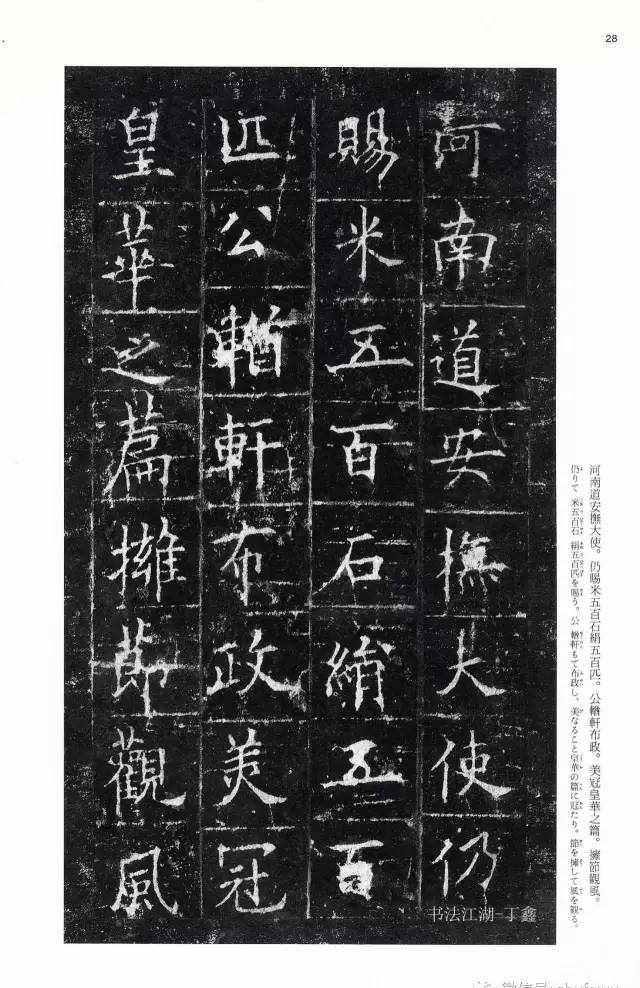 28
河南道安撫大使仍
賜米五百石絹五百
匹公輶軒布政美冠
皇華之篇擁節觀風
河南道安撫大使。仍賜米五百石絹五百匹。公輶軒布政。美冠皇華之篇。擁節觀風。
仍りて米五百石絹五百匹を賜う。公輶軒もて布政し、美なること皇華の篇に冠たり。節を擁して風を観る。
书法江湖-丁鑫